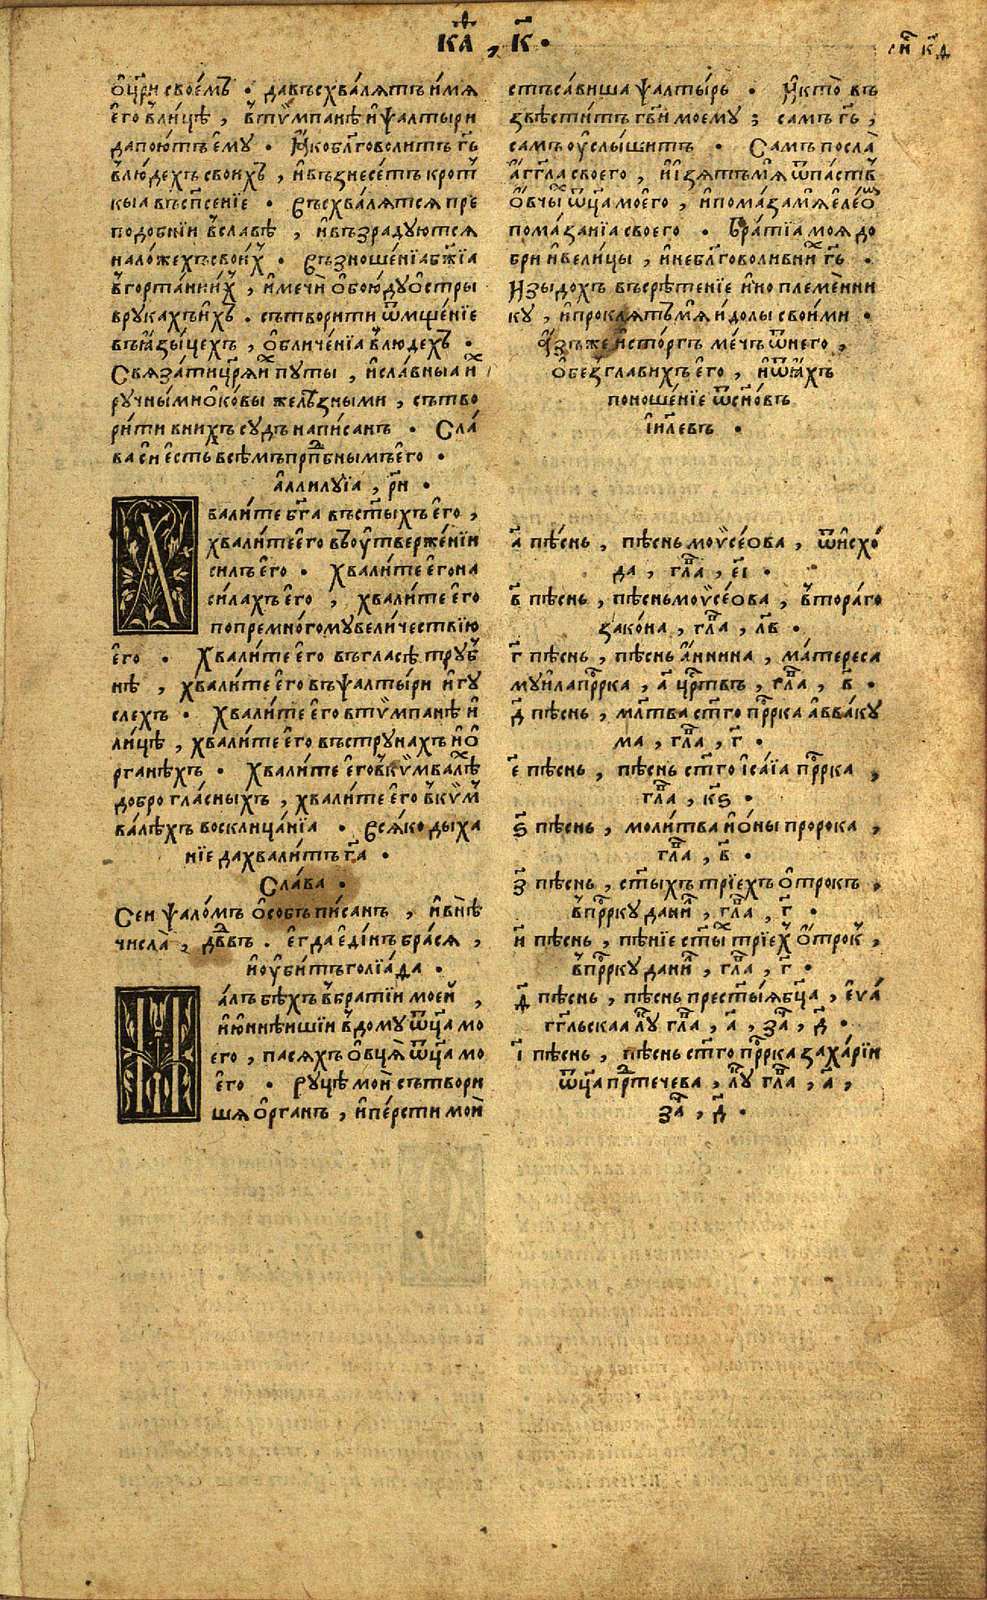 каѳ҃, к҃.
ли҃ к҃д
ѻ҆цр҃и свое́мъ . давъсхва́лятъ и҆́мя
є҆го̀ вли́цѣ , втѷмпанѣ и҆ ѱалтыри
дапою́тъ є҆мꙋ̀ . Ꙗ҆кобл҃говоли́тъ гь҃
влю́дехъ свои́хъ , и҆възнесе́тъ крот
кыа въсп҃се́нїе . Въсхва́лятся пре
подо́бнїи всла́вѣ , и҆възра́дꙋются
нало́жехъ свои́х . Възноше́нїабж҃їа
вгорта́ни и҆х , и҆мечи̑ ѻ҆бою́дꙋо́стры
врꙋка́хъ и҆́хъ . сътвори́ти ѿмще́нїе
въꙗ҆зы́цехъ , ѻ҆бличе́нїа влю́дех .
Связа́ти цр҃я и҆х пꙋ́ты , и҆сла́вныа и҆
рꙋчны́ми ѻ҆ко́вы желѣ́зными , сътво
ри́ти вни́хъ сꙋ́дъ напи́санъ . Сла́
ва сїи є҆сть всѣ́мъ прп҃бнымъ є҆го̀ .
аллилꙋ́їа , рн҃ .
Хвали́те бг҃а въст҃ы́хъ є҆го̀ ,
хвали́те є҆го̀ въоу҆тверже́нїи
си́лъ є҆го̀ . Хвали́те є҆го̀ на
си́лахъ є҆го̀ , хвали́те є҆го̀
попремно́гомꙋ вели́чествїю
є҆го̀ . Хвали́те є҆го̀ въгла́сѣ трꙋб
нѣ , хвали́те є҆го̀ въѱалты́ри и҆гꙋ
слехъ . Хвали́те є҆го̀ втѷмпанѣ и҆
ли́цѣ , хвали́те є҆го̀ въстрꙋ́нахъ и҆ ѻ҆
рга́нѣхъ . Хвали́те є҆го̀ вкѷмва́лѣ
доброгла́сныхъ , хвали́те є҆го̀ вкѷм
ва́лѣхъ восклица́нїа . Вся́ко дыха
нїе дахва́литъ гд҃а .
Сла́ва .
Сеи ѱало́мъ ѻ҆со́бъ пи́санъ , и҆внѣ̀
числа̀ , дв҃дъ . є҆гда̀ є҆ди́нъ бра́ся ,
и҆оу҆би́тъ голїа́да .
Ма́лъ бѣ́хъ вбра́тїи мое́и ,
и҆ю҆нѣ́ишїи вдомꙋ̀ ѿца̀ мо
его , пася́хъ ѻ҆вця̀ ѿца̀ мо
его̀ . Рꙋ́цѣ мои̑ сътвори
шя ѻ҆рга́нъ , и҆пе́рсти мои̑
съста́виша ѱалты́рь . И҆кто̀ въ
звѣсти́тъ гв҃и моемꙋ ; са́мъ гь҃ ,
са́мъ оу҆слы́шитъ . Са́мъ посла̀
а҆́гг҃ла своего , и҆взя́тъ мя̀ ѿпа́ствъ
ѻ҆вчы́х ѿца̀ моего , и҆пома́за мя̀ є҆ле́ѡ
пома́занїа своего . Бра́тїа моя̀ до
бри и҆вели́цы , и҆небл҃говоли вни́х гь҃ .
И҆зыдо́хъ въсрѣ́тенїе и҆ноплеме́нни
кꙋ , и҆прокля́тъ мя̀ и҆́долы свои́ми .
А҆́зъ же и҆сто́ргъ ме́чь ѿне́го ,
ѻ҆безгла́вихъ є҆го̀ , и҆ѿꙗ҆́хъ
поноше́нїе ѿсн҃о́въ
і҆ил҃евъ .
а҃ пѣ́снь , пѣ́снь моѷсе́ова , ѿи҆схо́
да , гла҃ , є҃і .
в҃ пѣ́снь , пѣ́снь моѷсе́ова , втора́го
зако́на , гла҃ , лв҃ .
г҃ пѣ́снь , пѣ́снь а҆́ннина , ма́тере са
мꙋи́ла пр҃рка , а҃ цр҃твъ , гла҃ , в҃ .
д҃ пѣ́снь , мл҃тва ст҃го пр҃рка а҆вва́кꙋ
ма , гла҃ , г҃ .
є҃ пѣ́снь , пѣ́снь ст҃го і҆са́їа пр҃рка ,
гла҃ , кѕ҃ .
ѕ҃ пѣ́снь , моли́тва и҆ѻ́ны проро́ка ,
гла҃ , в҃ .
з҃ пѣ́снь , ст҃ы́хъ трїе́хъ ѻ҆́трокъ ,
впр҃ркꙋ дани҃ , гла҃ , г҃ .
и҃ пѣ́снь , пѣ́нїе ст҃ы́х трїе́х ѻ҆́трок ,
впр҃ркꙋ дани҃ , гла҃ , г҃ .
ѳ҃ пѣ́снь , пѣ́снь прест҃ы́я бц҃а , є҆ѵа́
гг҃льскаа лꙋ҃ гла҃ , а҃ , за҃ , д҃ .
і҃ пѣ́снь , пѣ́снь ст҃го пр҃рка заха́рїи
ѿца̀ пр҃тече́ва , лꙋ҃ гла҃ , а҃ ,
за҃ , д҃ .